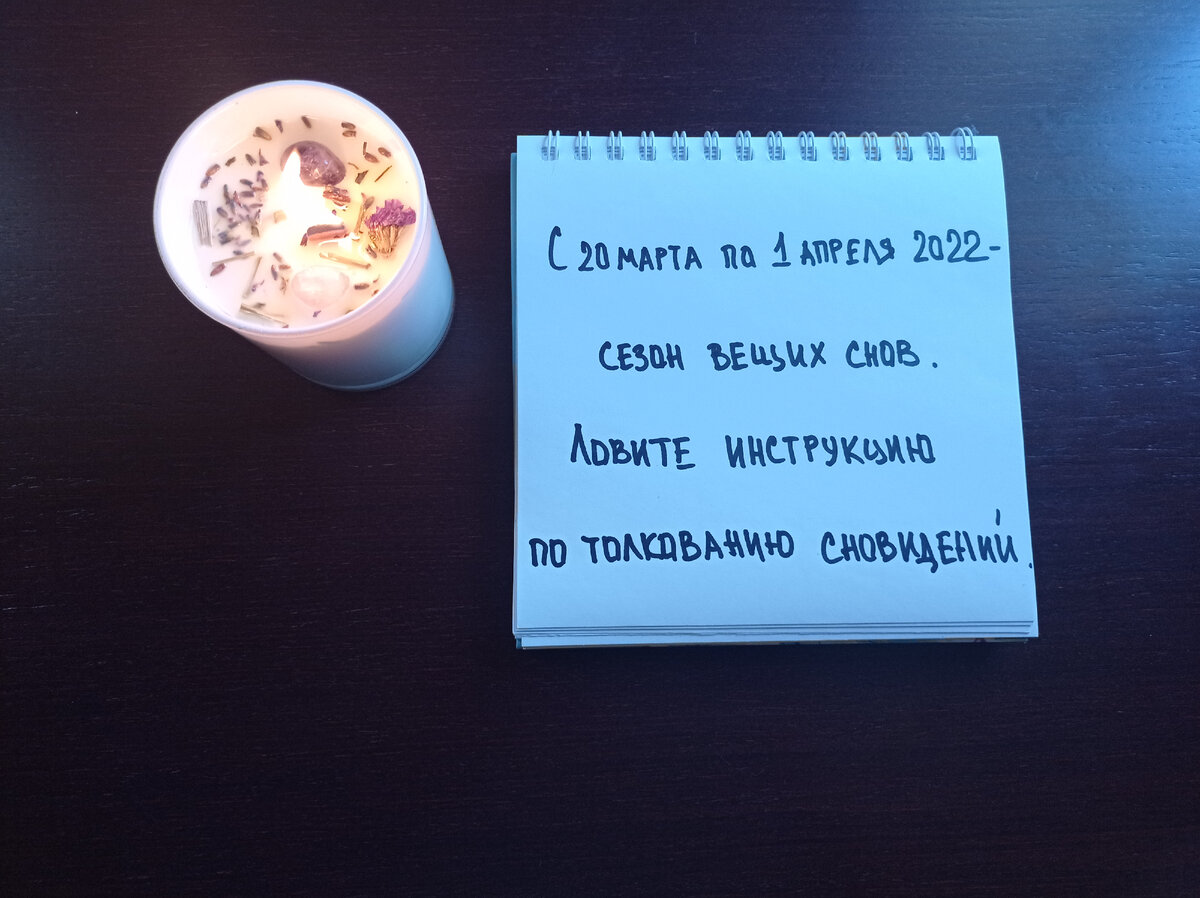 С 20 МАРТА ПО 1 АПРЕЛЯ 2022-
СЕЗОН ВЕЩИХ СНОВ.
ЛОВИТЕ ИНСТРУКЦИЮ
ПО ТОЛКОВАНИЮ СНОВИДЕНИЙ.